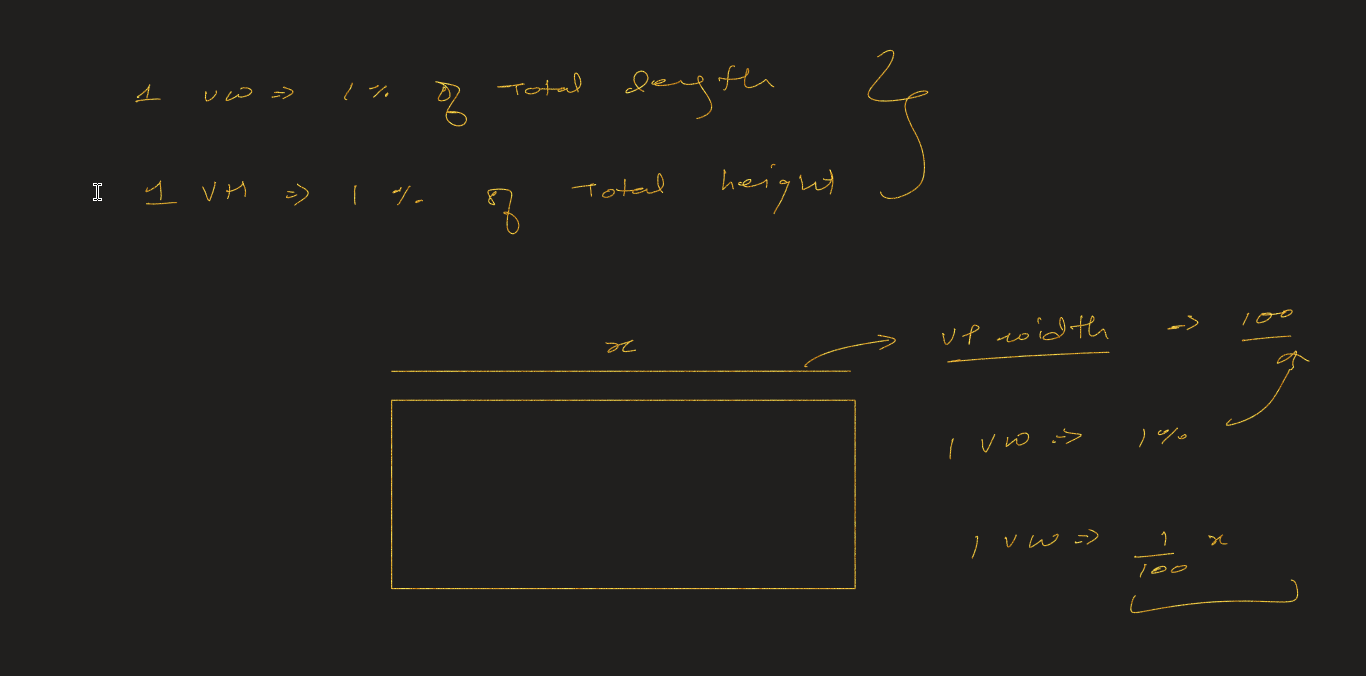 1 vw => 1% of Total length
1 VH => 1% of Total height
x
VP width => 100
1 vw => 1%
1 vw => 1/100 x